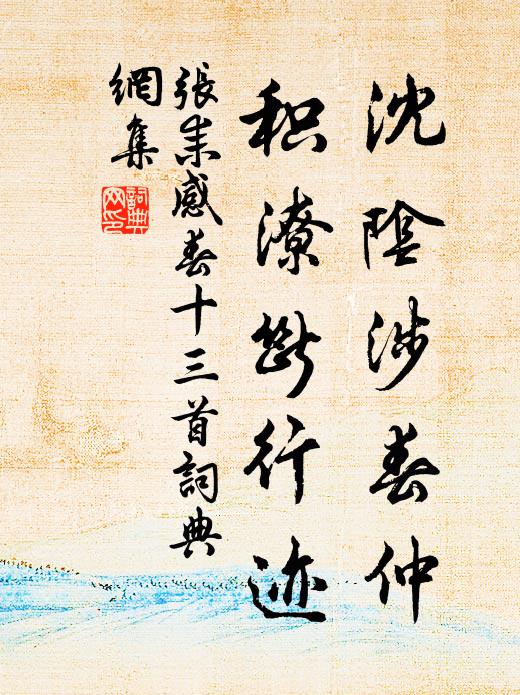 沈陰涉春仲
积潦斷行迹
張耒感春十三首詞典
網集
詞典
网印